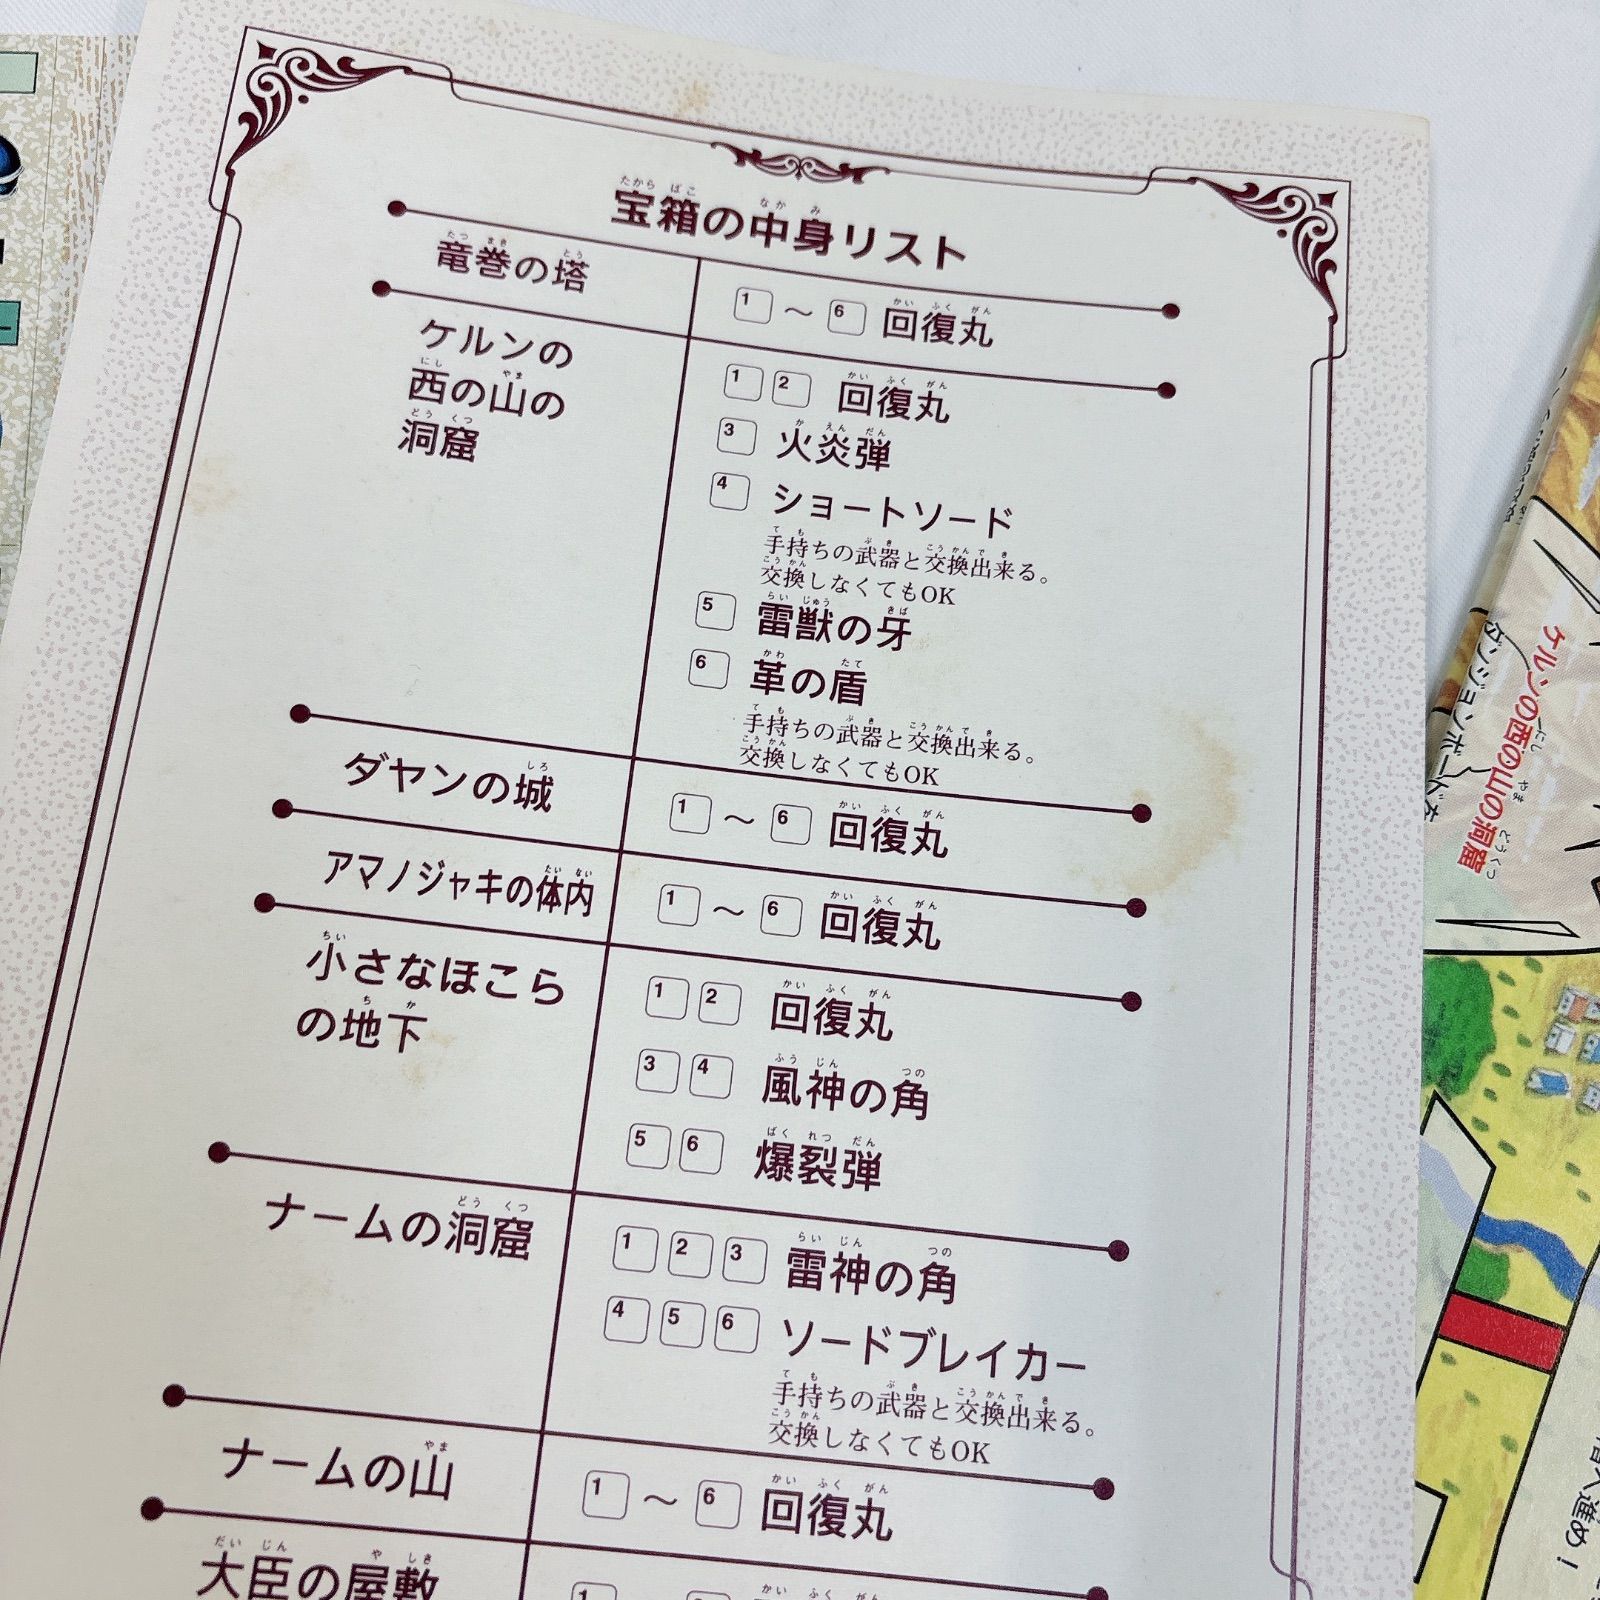 宝箱の中身リスト
竜巻の塔
1 ～ 6 回復丸
ケルンの
西の山の
洞窟
1 2 回復丸
3 火炎弾
4 ショートソード
手持ちの武器と交換出来る。
交換しなくてもOK
5 雷獣の牙
6 革の盾
手持ちの武器と交換出来る。
交換しなくてもOK
ダヤンの城
1 ～ 6 回復丸
アマノジャキの体内
1 ～ 6 回復丸
小さなほこら
の地下
1 2 回復丸
3 4 風神の角
5 6 爆裂弾
ナームの洞窟
1 2 3 雷神の角
4 5 6 ソードブレイカー
手持ちの武器と交換出来る。
交換しなくてもOK
ナームの山
1 ～ 6 回復丸
大臣の屋敷
1
ケルンの西の山の洞窟
ダンジョンボードを
進め！